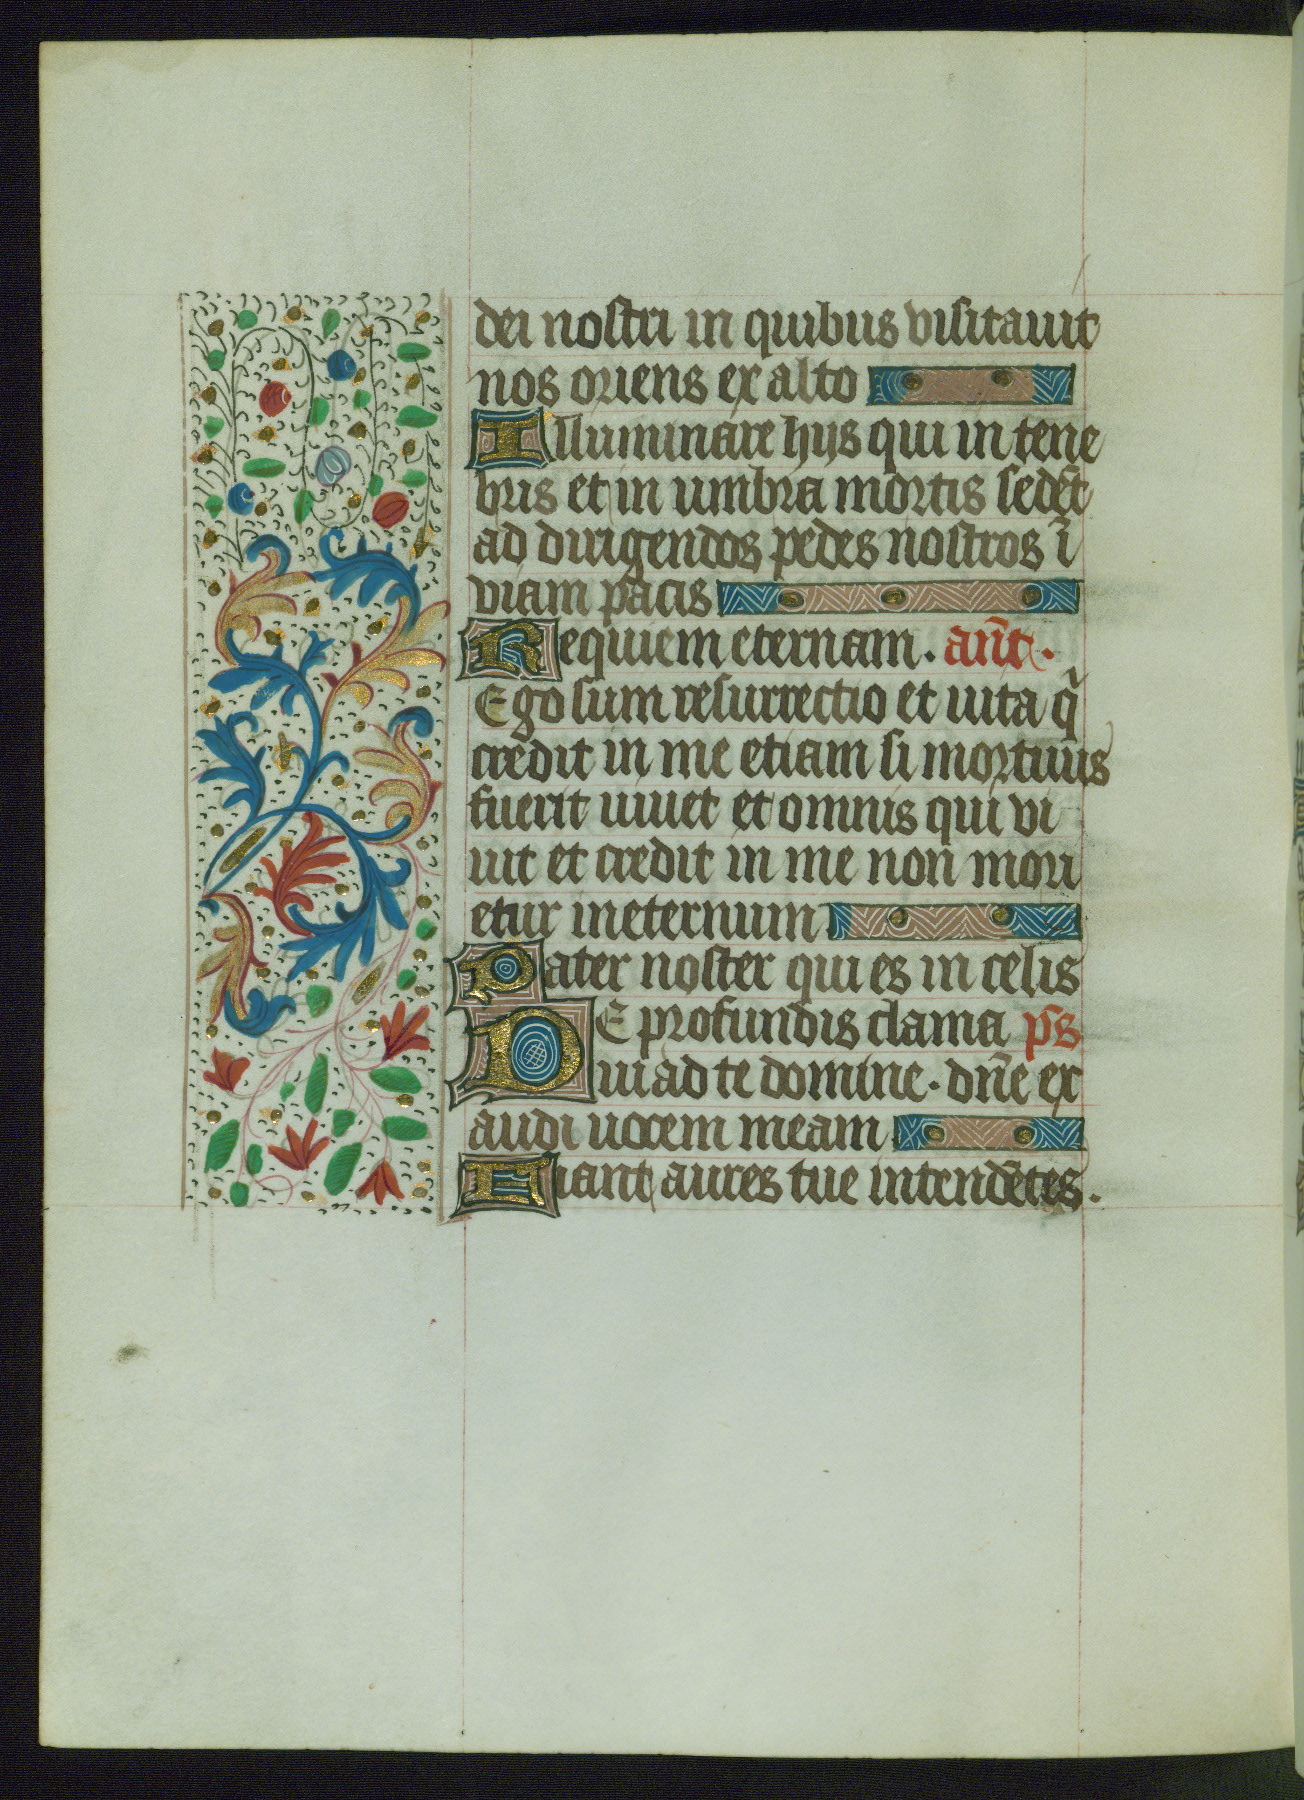 dei nostri in quibus visitauit
nos oriens ex alto
Illuminare hijs qui in tene
bris et in umbra mortis sedēt
ad dirigendos pedes nostros ī
viam pacis
Requiem eternam. añt.
Ego sum resurrectio et uita q̄
credit in me etiam si mortuus
fuerit uiuet et omnis qui vi
uit et credit in me non mori
etur ineternum
Pater noster qui es in celis
De profundis clama ps̄
ui ad te domine. dñe ex
audi uocem meam
Fiant aures tue intendētes.